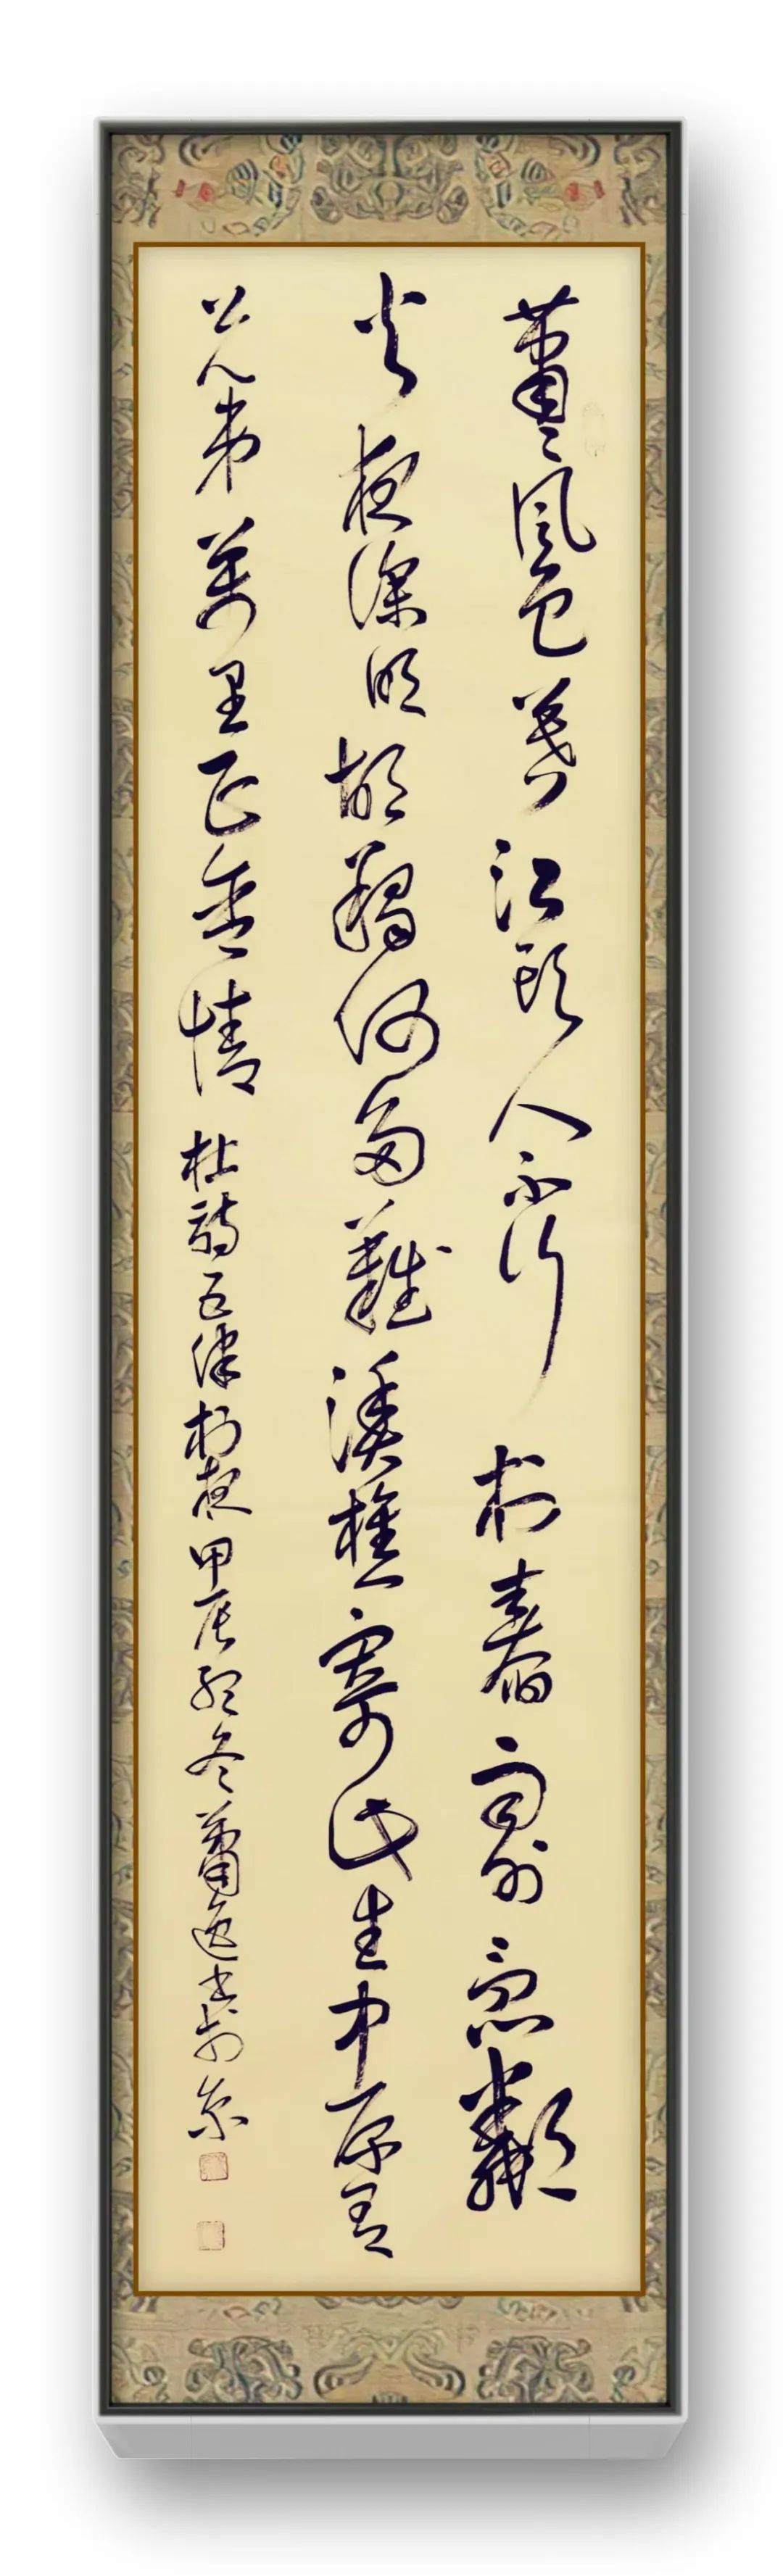 蕭〻風色暮江頭人不行村舂雨外急鄰
火夜深明胡羯何多難漁樵寄此生中原有
兄弟萬里正含情 杜詩五律村夜甲辰初冬蕭逸書於京